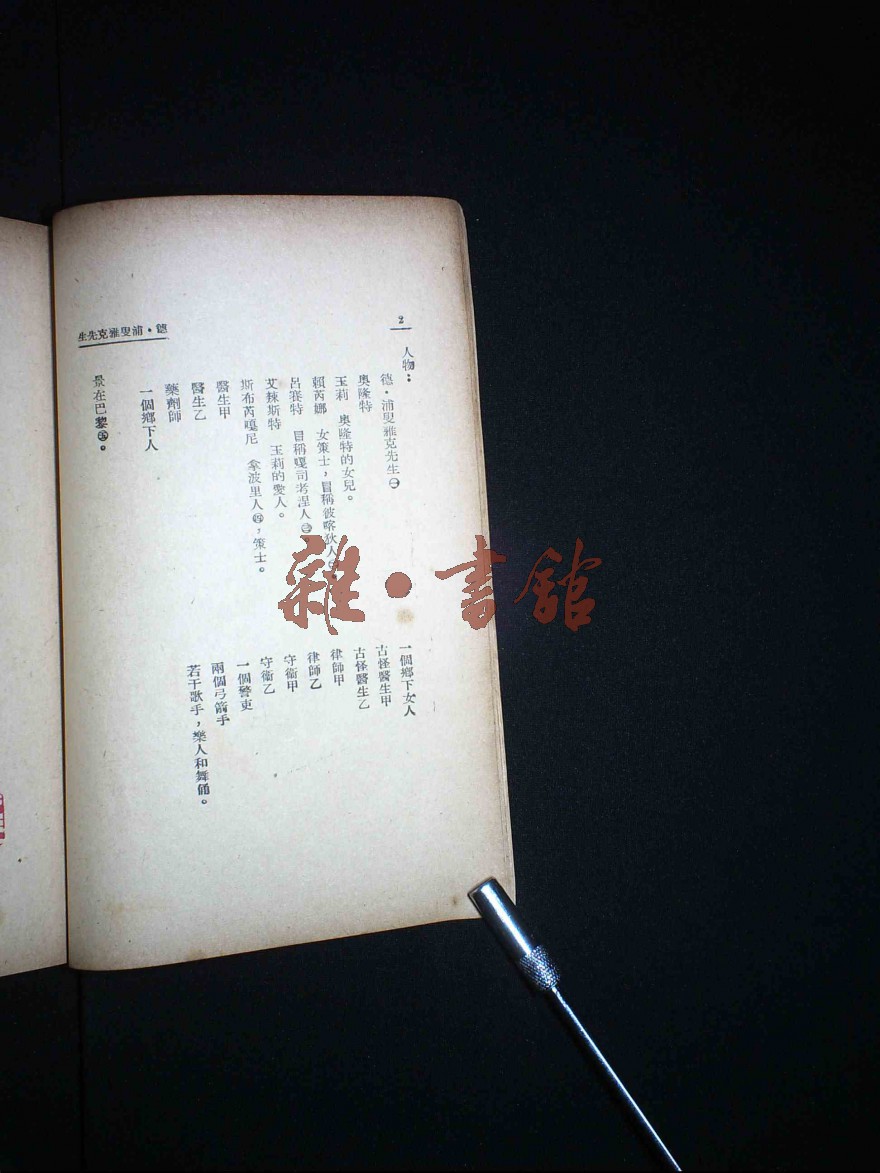 2
德•浦叟雅克先生
人物：
德•浦叟雅克先生㊀
奧隆特
玉莉 奧隆特的女兒。
賴芮娜 女策士，冒稱彼喀狄人
呂賽特 冒稱嘎司考涅人㊂
艾辣斯特 玉莉的愛人。
斯布芮嘎尼 拿波里人㊃，策士。
醫生甲
醫生乙
藥劑師
一個鄉下人
一個鄉下女人
古怪醫生甲
古怪醫生乙
律師甲
律師乙
守衛甲
守衛乙
一個警吏
兩個弓箭手
若干歌手，樂人和舞俑。
景在巴黎㊄。
雜•書館